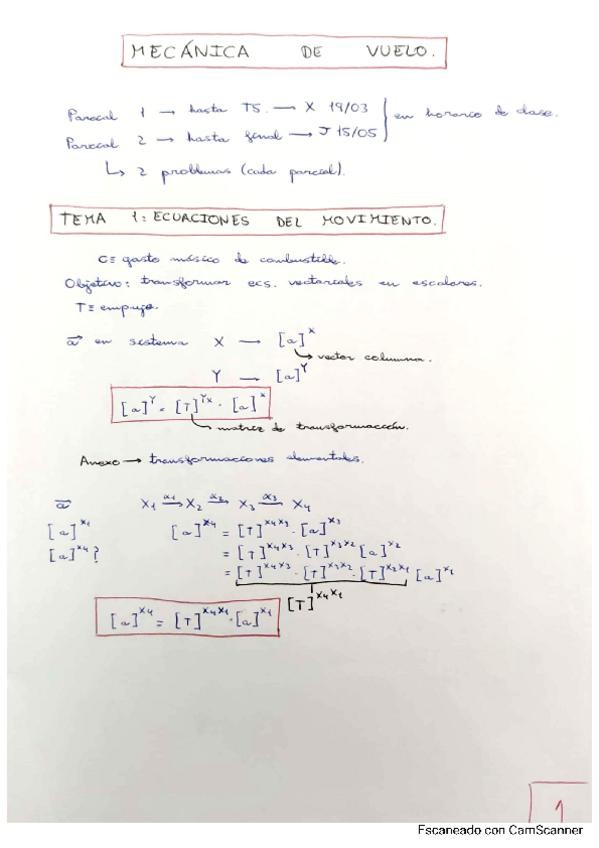 MECÁNICA DE VUELO.
Parcial 1 → hasta T5. → X 19/03
Parcial 2 → hasta final → J 15/05
} en horario de clase.
↳ 2 problemas (cada parcial).
TEMA 1: ECUACIONES DEL MOVIMIENTO.
C ≡ gasto másico de combustible.
Objetivo: transformar ecs. vectoriales en escalares.
T ≡ empuje.
a⃗ en sistema X → [a]^X
↳ vector columna.
Y → [a]^Y
[a]^Y = [T]^YX · [a]^X
↳ matriz de transformación.
Anexo → transformaciones elementales.
a⃗ X1 →α1 X2 →α2 X3 →α3 X4
[a]^X1 [a]^X4 = [T]^X4X3 · [a]^X3
[a]^X4? = [T]^X4X3 · [T]^X3X2 [a]^X2
= [T]^X4X3 · [T]^X3X2 · [T]^X2X1 [a]^X1
[T]^X4X1
[a]^X4 = [T]^X4X1 · [a]^X1
1
Escaneado con CamScanner